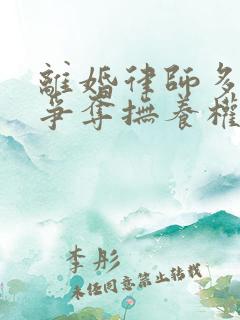 離婚律師多
爭奪撫養權
李彤
未經同意禁止轉載